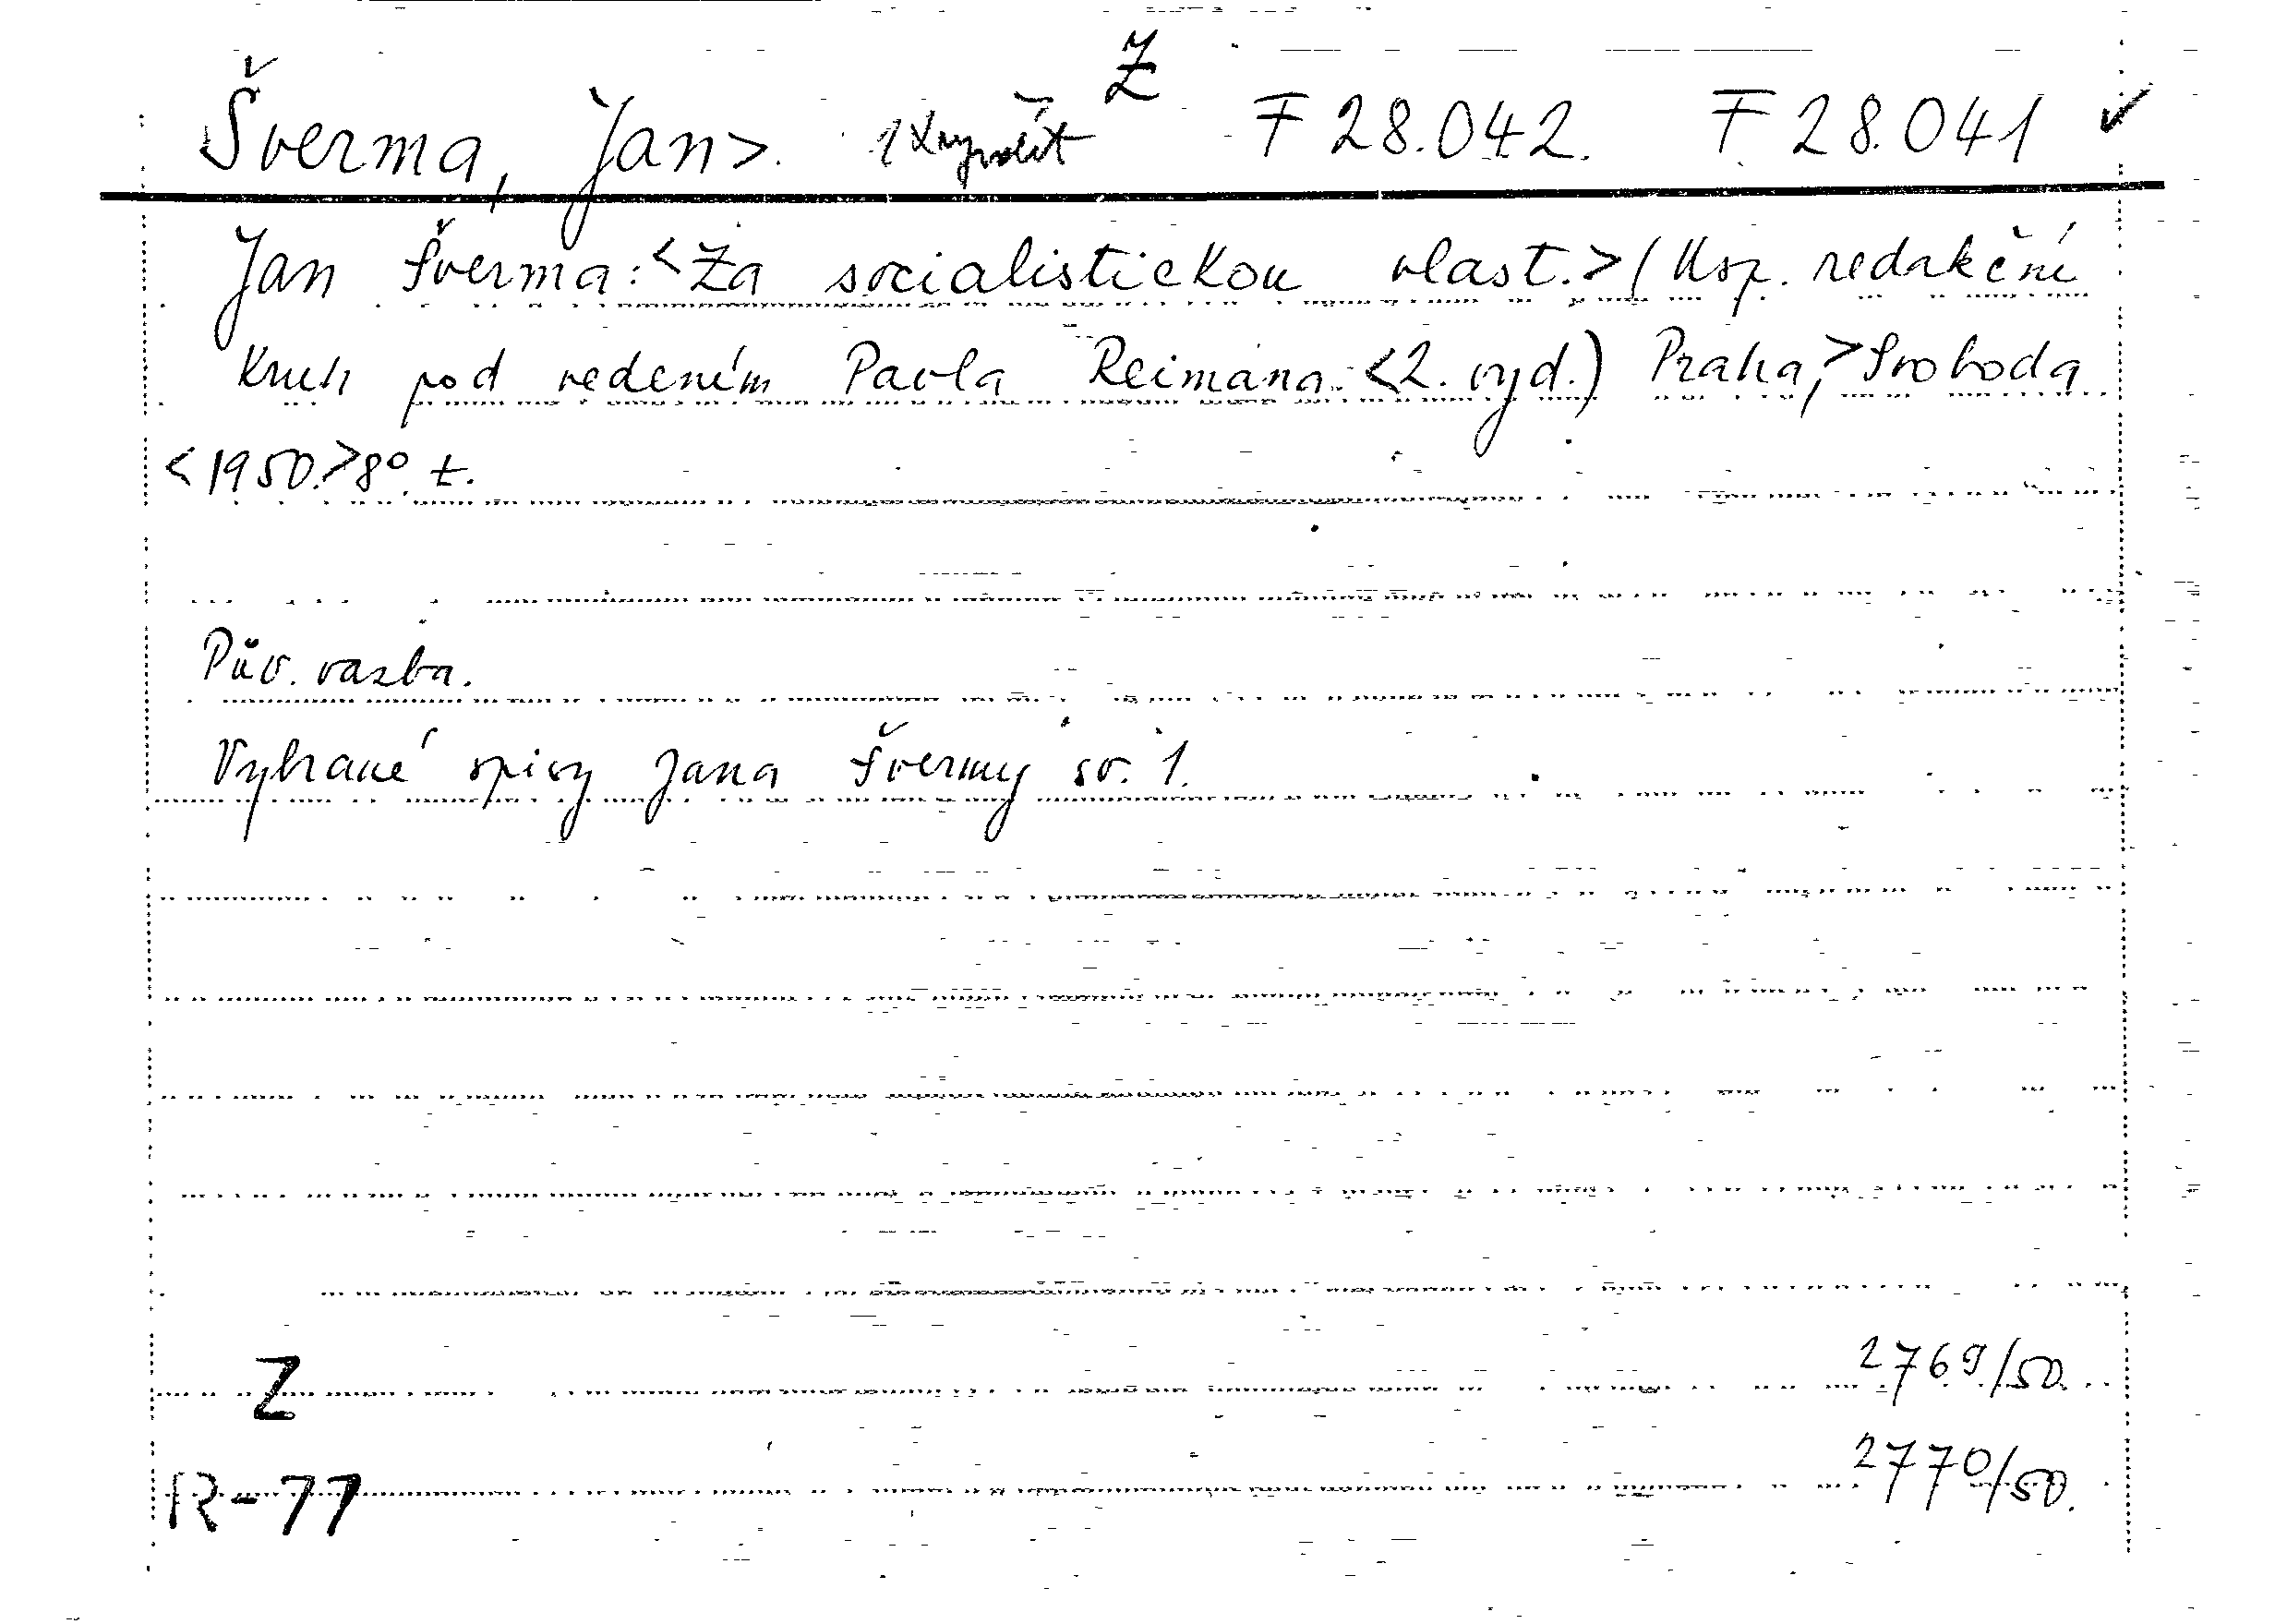 Ƶ
Šverma, Jan>. 1x F 28.042. F 28.041 ✓
Jan Šverma: <Za socialistickou vlast.> (Usp. redakční
kruh pod vedením Pavla Reimana. <2. vyd.) Praha,> Svoboda
<1950.> 8° t.
Pův. vazba.
Vybrané spisy Jana Švermy sv. 1.
Z 2769/50.
R-77 2770/50.